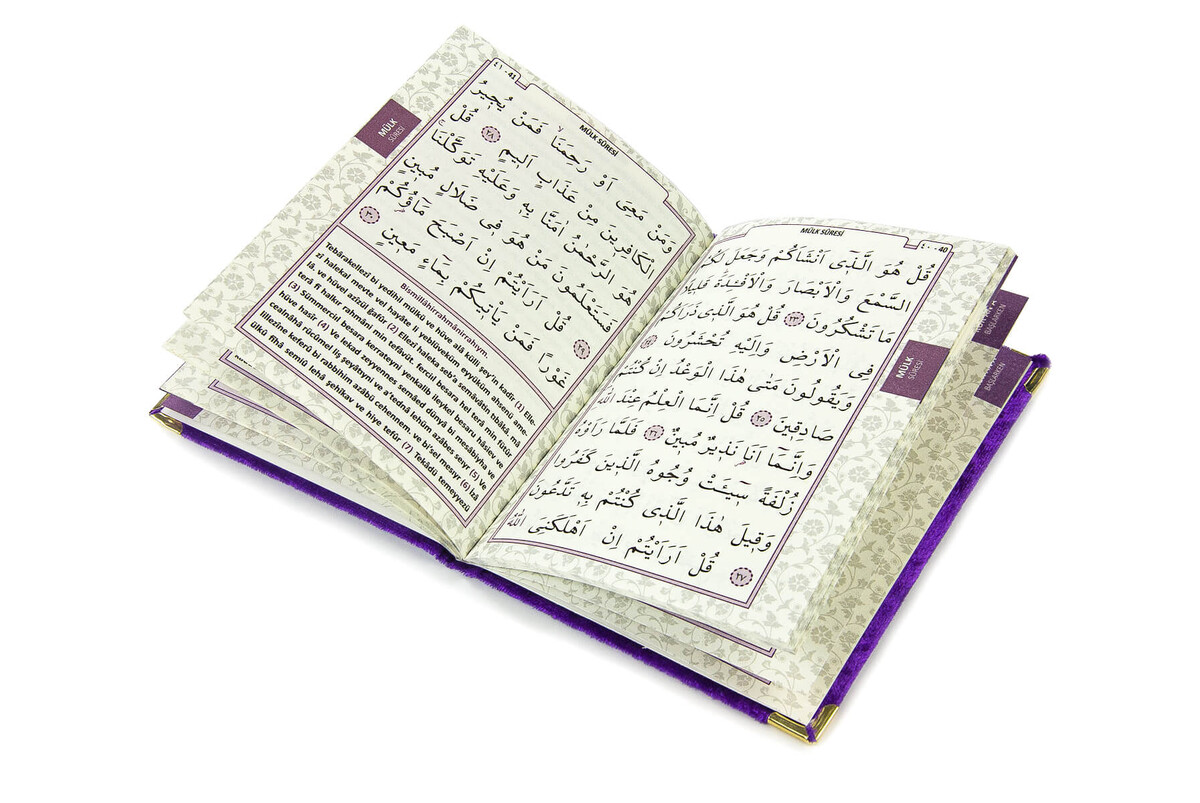 MÜLK SÛRESİ
٤٠ - 40
قُلْ هُوَ الَّذٖٓى اَنْشَاَكُمْ وَجَعَلَ لَكُمُ
السَّمْعَ وَالْاَبْصَارَ وَالْاَفْـِٔدَةَ قَلٖيلًا
مَا تَشْكُرُونَ ٢٣ قُلْ هُوَ الَّذٖى ذَرَاَكُمْ
فِى الْاَرْضِ وَاِلَيْهِ تُحْشَرُونَ ٢٤
وَيَقُولُونَ مَتٰى هٰذَا الْوَعْدُ اِنْ كُنْتُمْ
صَادِقٖينَ ٢٥ قُلْ اِنَّمَا الْعِلْمُ عِنْدَ اللّٰهِ
وَاِنَّمَٓا اَنَا۬ نَذٖيرٌ مُبٖينٌ ٢٦ فَلَمَّا رَاَوْهُ
زُلْفَةً سٖٓيـَٔتْ وُجُوهُ الَّذٖينَ كَفَرُوا
وَقٖيلَ هٰذَا الَّذٖى كُنْتُمْ بِهٖ تَدَّعُونَ
٢٧ قُلْ اَرَاَيْتُمْ اِنْ اَهْلَكَنِىَ اللّٰهُ
MÜLK
SÛRESİ
BAŞLARKEN
BAŞLARKEN
٤١ - 41
MÜLK SÛRESİ
وَمَنْ مَعِىَ اَوْ رَحِمَنَاۙ فَمَنْ يُجٖيرُ
الْكَافِرٖينَ مِنْ عَذَابٍ اَلٖيمٍ ٢٨ قُلْ
هُوَ الرَّحْمٰنُ اٰمَنَّا بِهٖ وَعَلَيْهِ تَوَكَّلْنَاۚ
فَسَتَعْلَمُونَ مَنْ هُوَ فٖى ضَلَالٍ مُبٖينٍ
٢٩ قُلْ اَرَاَيْتُمْ اِنْ اَصْبَحَ مَٓاؤُ۬كُمْ
غَوْرًا فَمَنْ يَأْتٖيكُمْ بِمَٓاءٍ مَعٖينٍ ٣٠
Bismillâhirrahmânirrahıym.
Tebârakellezî bi yedihil mülkü ve hüve alâ külli şey'in kadîr (1) Elle-
zî halekal mevte vel hayâte li yeblüveküm eyyüküm ahsenü ame-
lâ. ve hüvel azîzül ğafûr (2) Ellezî haleka seb'a semâvâtin tıbâkâ mâ
terâ fî halkır rahmâni min tefâvüt. ferciıl besara hel terâ min fütûr
(3) Sümmerciıl besara kerrateyni yenkalib ileykel besaru hâsiev ve
hüve hasîr (4) Ve lekad zeyyennes semâed dünyâ bi mesâbîyha ve
cealnâhâ rücûmel liş şeyâtıyni ve a'tednâ lehüm azâbes seıyr (5) Ve
lillezîne keferû bi rabbihim azâbü cehennem. ve bi'sel mesıyr (6) İzâ
ülkû fîhâ semiû lehâ şehîkav ve hiye tefûr (7) Tekâdü temeyyezü
MÜLK
SÛRESİ